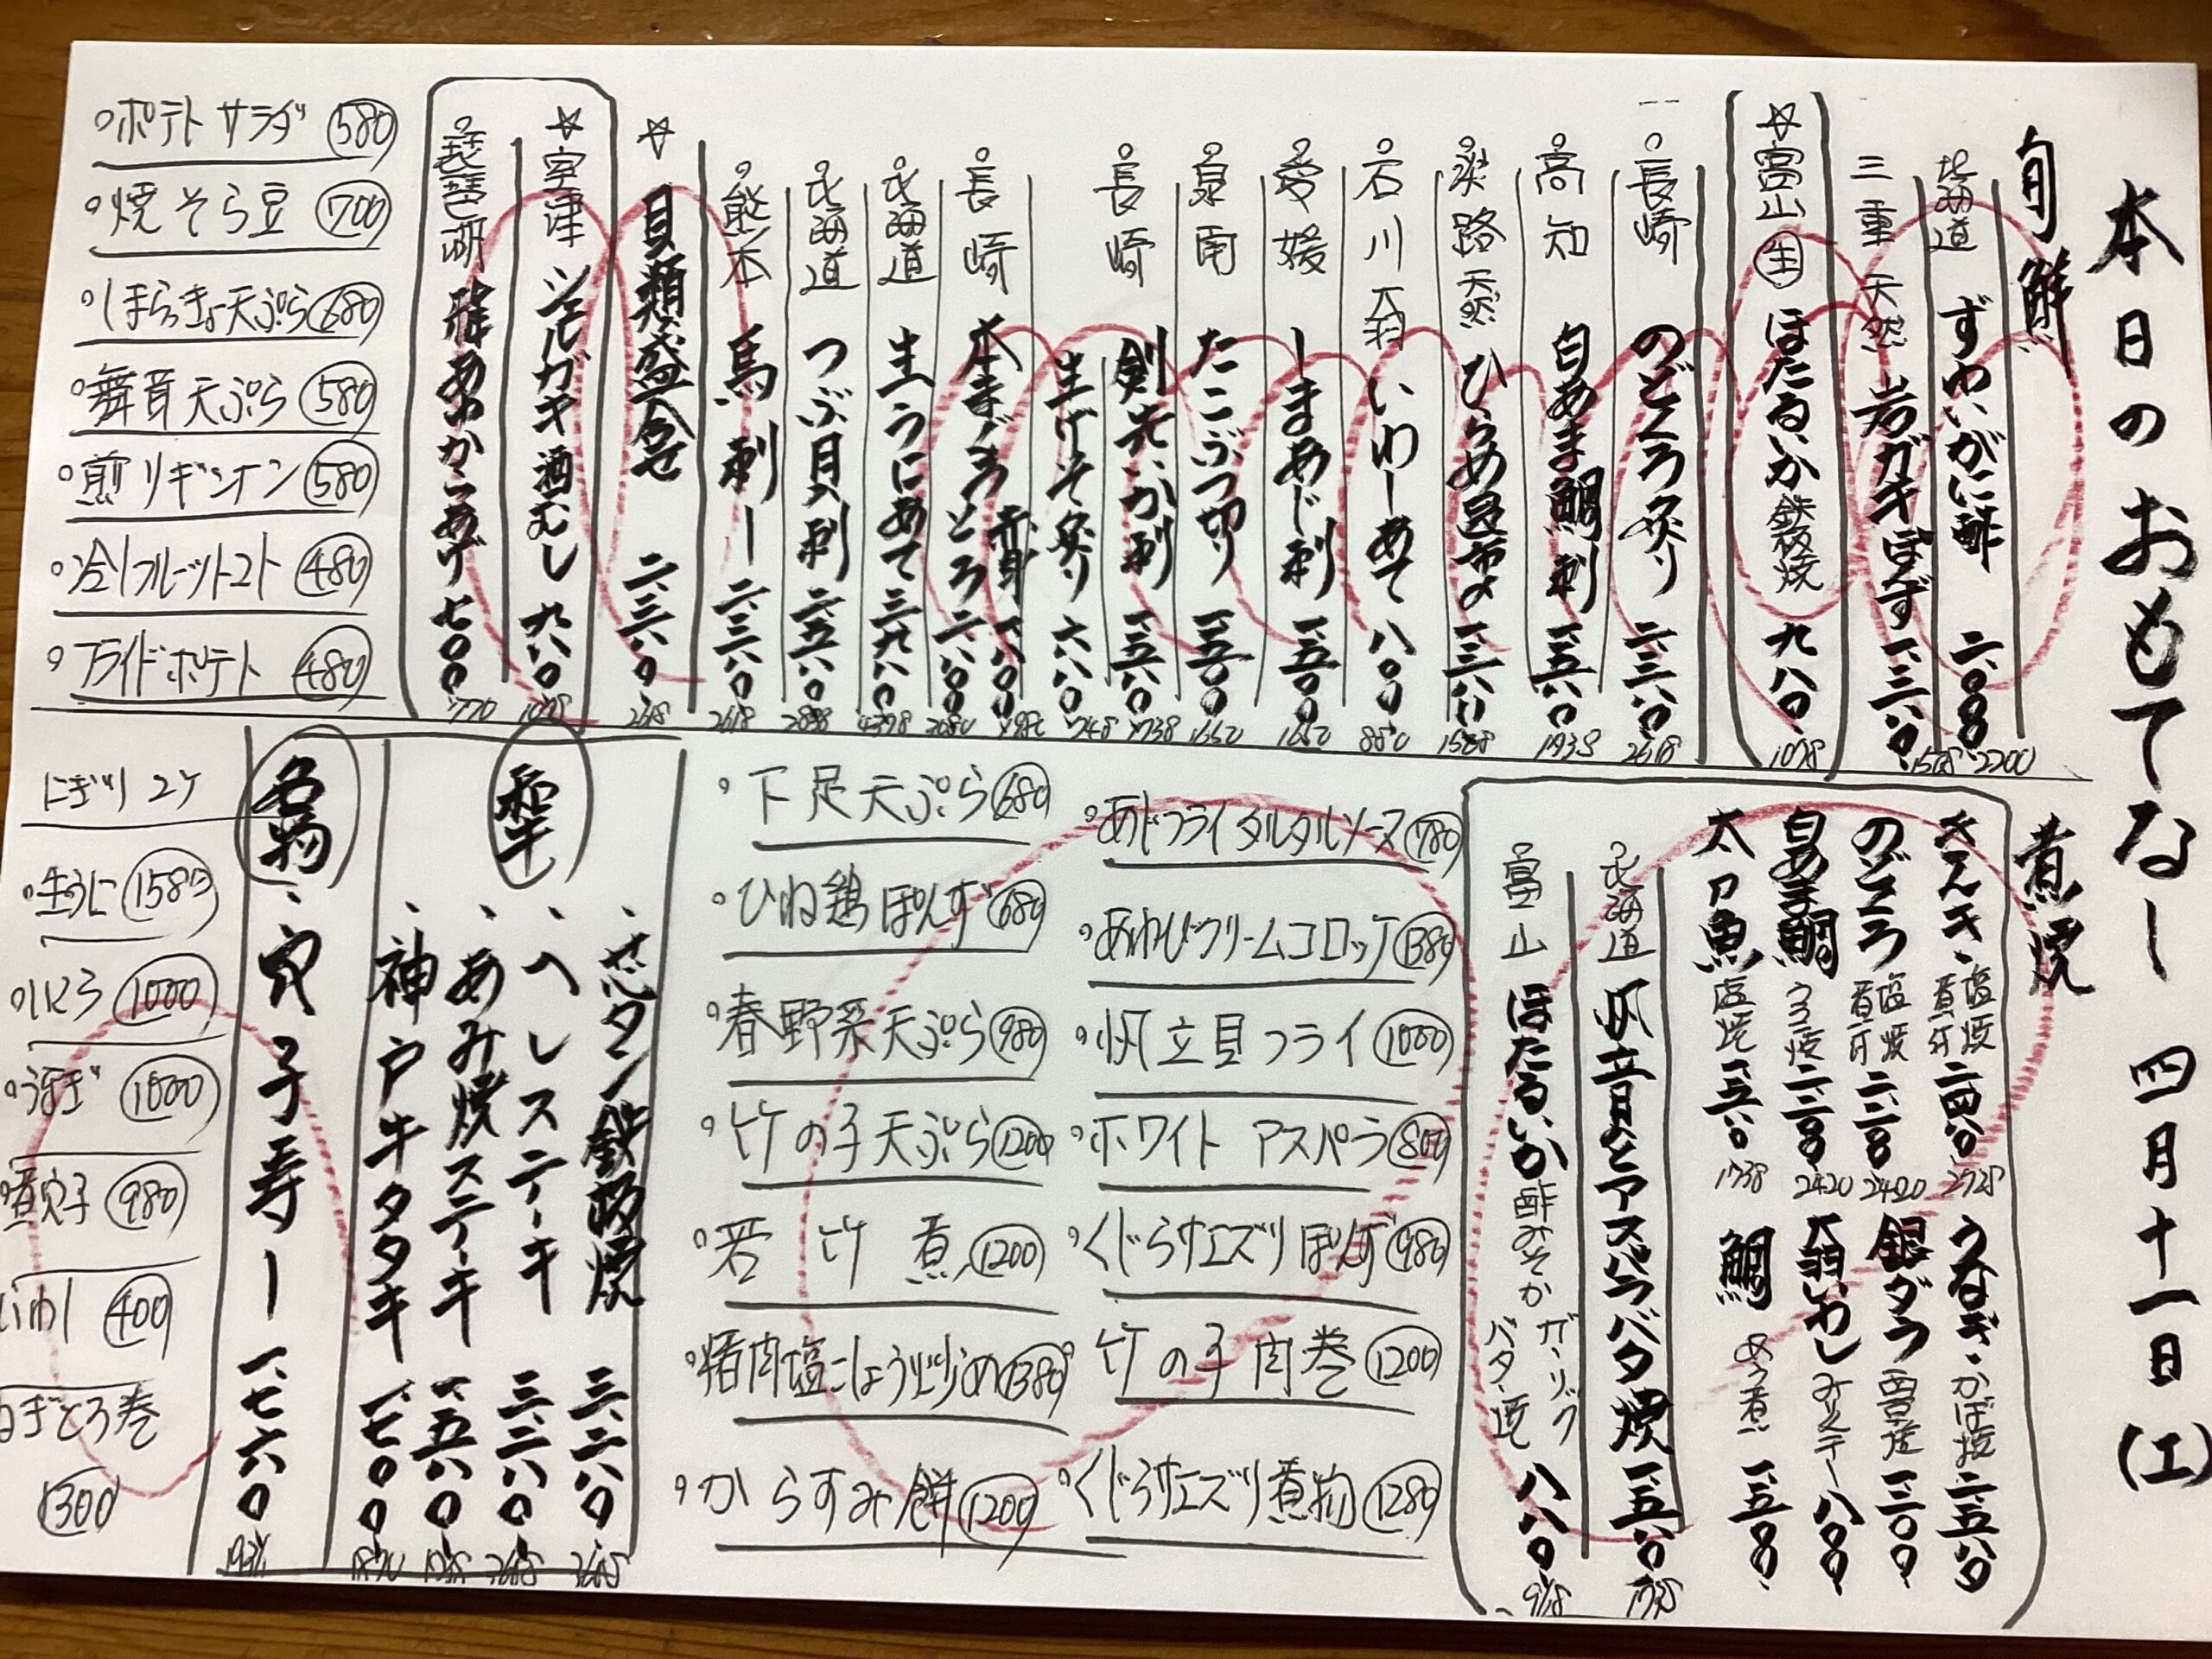 本日のおもてなし 四月十一日(工)
旬鮮
北海道 ずわいがに酢 二、〇〇〇 2200
三重 天然 岩ガキぽず 一、三八〇 1518
☆富山 生 ほたるいか 鉄板焼 九八〇 1078
長崎 のどくろ炙り 二、三八〇 2618
高知 白あま鯛刺 一、五八〇 1738
淡路 天然 ひらめ昆布〆 一、三八〇 1518
石川 大羽 いわしあて 八〇〇 880
愛媛 しまあじ刺 一、五〇〇 1650
泉南 たこぶつ切り 一、五〇〇 1650
長崎 剣先いか刺 一、五八〇 1738
生げそ炙り 六八〇 748
長崎 本まぐろ 赤身 一、八〇〇 1980
とろ 二、八〇〇 3080
北海道 生うにあて 三、九八〇 4378
北海道 つぶ貝刺 二、五八〇 2838
熊本 馬刺し 二、三八〇 2618
☆ 貝類盛合せ 二、三八〇 2618
☆室津 シェルガキ酒むし 九八〇 1078
琵琶湖 稚あゆからあげ 七〇〇 770
ポテトサラダ 580
焼そら豆 700
しまらっきょ天ぷら 680
舞茸天ぷら 580
煎りギンナン 580
冷しフルーツトマト 480
フライドポテト 480
煮焼
きんき 塩焼 煮付 二、四八〇 2728
のどくろ 塩焼 煮付 二、二〇〇 2420
白あま鯛 うろこ焼 二、二〇〇 2420
太刀魚 塩焼 一、五八〇 1738
うなぎ かば焼 二、五八〇
銀ダラ 西京焼 一、三〇〇
大羽いわし みりんデー 八〇〇
鯛 あら煮 一、五〇〇
北海道 帆立貝とアスパラバタ焼 一、五八〇 1738
富山 ほたるいか 酢みそか ガーリックバター焼 八八〇 968
あじフライタルタルソース 780
あわびクリームコロッケ 1380
帆立貝フライ 1000
ホワイトアスパラ 800
くじらサエズリぽんず 980
竹の子肉巻 1200
くじらサエズリ煮物 1280
下足天ぷら 680
ひね鶏ぽんず 680
春野菜天ぷら 980
竹の子天ぷら 1200
若竹煮 1200
猪肉塩こしょう炒め 1380
からすみ餅 1200
和牛
芯タン鉄板焼 三、二八〇
へレステーキ 三、二八〇
あみ焼ステーキ 一、五八〇
神戸牛タタキ 一、七〇〇 1870
名物
穴子寿し 一、七六〇
にぎり2ケ
生うに 1580
とろ 1000
うなぎ 1000
煮穴子 980
いわし 400
ねぎとろ巻 1300